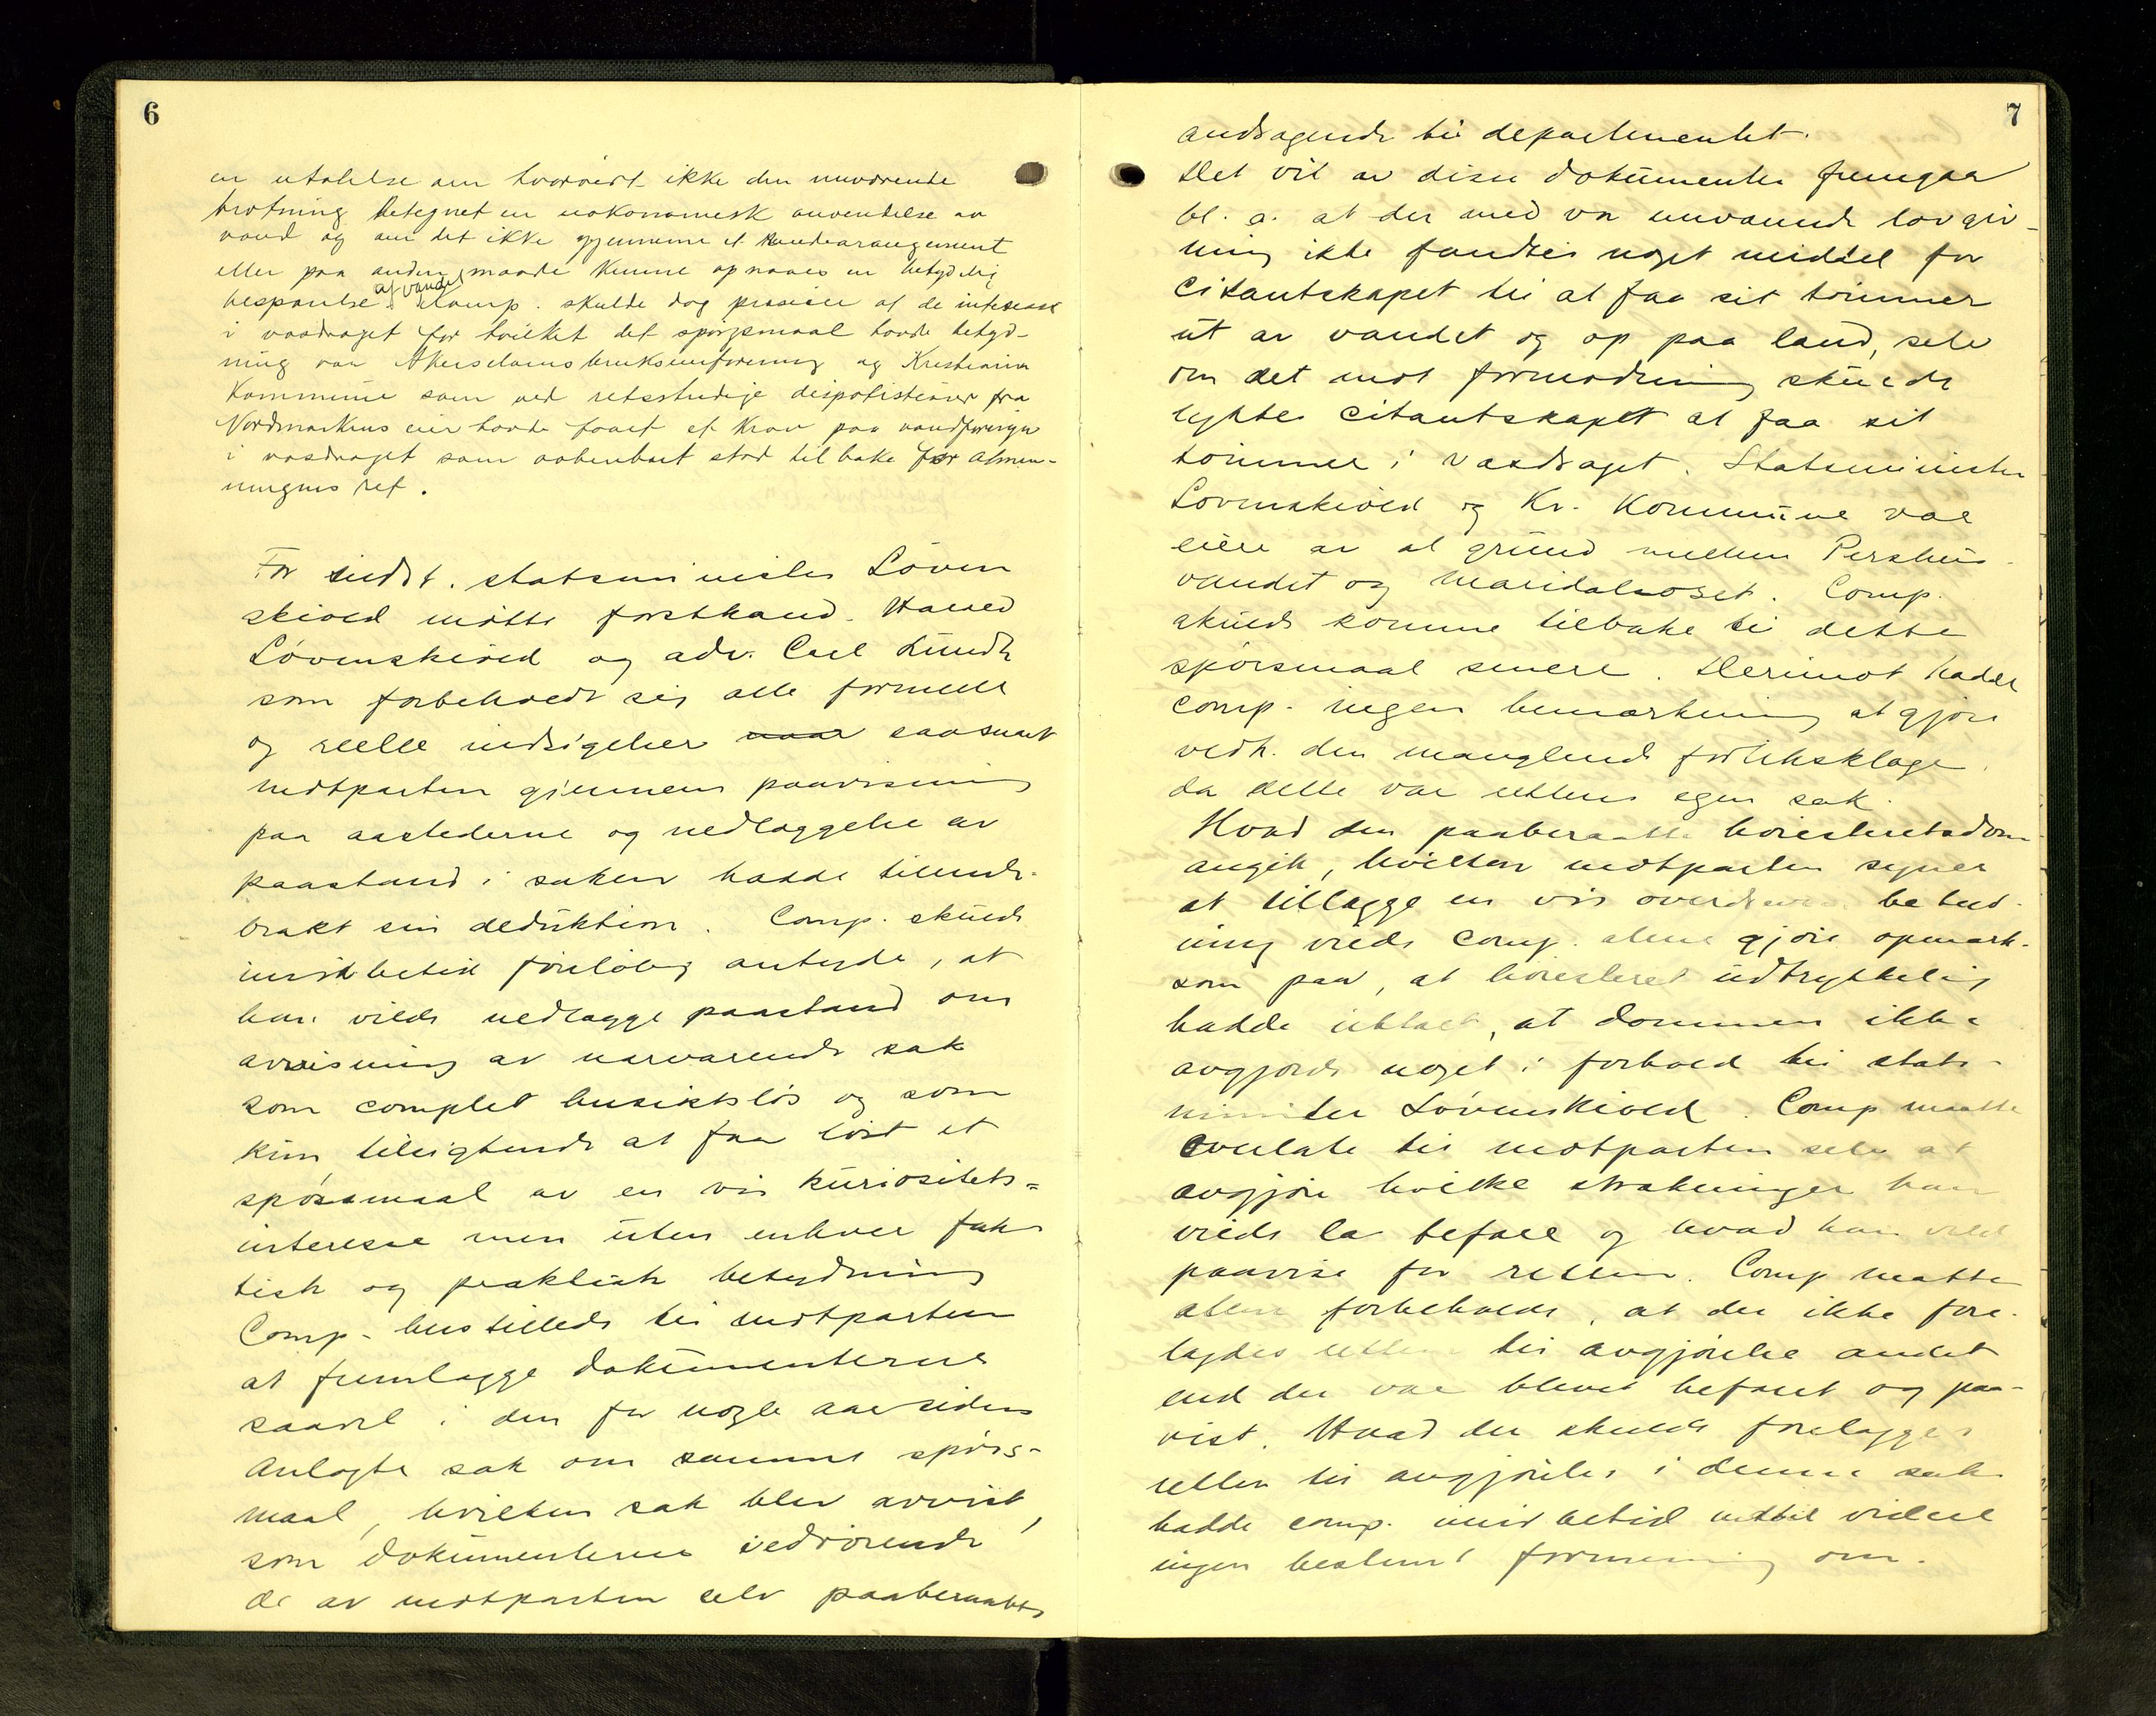 6
en utalelse om hvorvidt ikke den nuværende
fløtning betegnet en uøkonomisk anvendelse av
vand og om det ikke gjennem et arrangement
eller paa anden maade kunne opnaaes en betydelig
besparelse af vandet. Comp. skulde dog præcisere at de interesser
i vasdraget for hvilket det spørgsmaal havde betyd-
ning var Akerselvens brukseierforening og Kristiania
Kommune som ved retsstridige dispositioner fra
Nordmarkens eier havde faaet et Krav paa vandføringen
i vasdraget som aabenbart stod tilbake for almen-
ningens ret.
For indst. statsminister Löven
skiold mötte forstkand. Harald
Lövenskiold og adv. Carl Lundh
som forbeholdt sig alle formelle
og reelle indsigelser naar saasnart
motparten gjennem paavisning
paa aastederne og nedlæggelse av
paastand i saken hadde tilende-
brakt sin deduktion. Comp. skulde
imidlertid foreløbig antyde, at
han vilde nedlægge paastand om
avvisning av nærværende sak
som complet hensiktsløs og som
kun tilsigtende at faa löst et
spörsmaal av en vis kuriositets-
interesse men uten enhver fak
tisk og praktisk betydning
Comp. henstillede til motparten
at fremlægge dokumenterne
saavel i den for nogle aar siden
anlagte sak om samme spörs-
maal, hvilken sak blev avvist,
som dokumenterne vedrörende
de av motparten selv paaberaabte

7
andragende til departementet.
Det vil av disse dokumenter fremgaa
bl. a. at der med vor nuværende lovgiv-
ning ikke fandtes noget middel for
Citantskapet til at faa sit tömmer
ut av vandet og op paa land, selv
om det mot formodning skulde
lykkes citantskapet at faa sit
tömmer i vasdraget. Statsminister
Lövenskiold og Kr. Kommune var
eiere av al grund mellem
vandet og Maridalsoset. Comp.
skulde komme tilbake til dette
spörsmaal senere. Derimot hadde
comp. ingen bemerkning at gjöre
vedk. den manglende forliksklage,
da dette var rettens egen sak.
Hvad den paaberaabte höiesteretsdom
angik, hvilken motparten synes
at tillægge en vis overdreven betyd-
ning vilde comp. alene gjöre opmerk-
som paa, at höiesteret udtrykkelig
hadde uttalt, at dommen ikke
avgjorde noget i forhold til stats-
minister Lövenskiold. Comp maatte
overlate til motparten selv at
avgjöre hvilke strækninger han
vilde la befare og hvad han vilde
paavise for retten. Comp maatte
alene forbeholde, at der ikke fore-
lagdes retten til avgjörelse andet
end der var blevet befaret og paa-
vist. Hvad der skulde forelægges
retten til avgjörelse i denne sak
hadde comp. imidlertid indtil videre
ingen bestemt formening om.